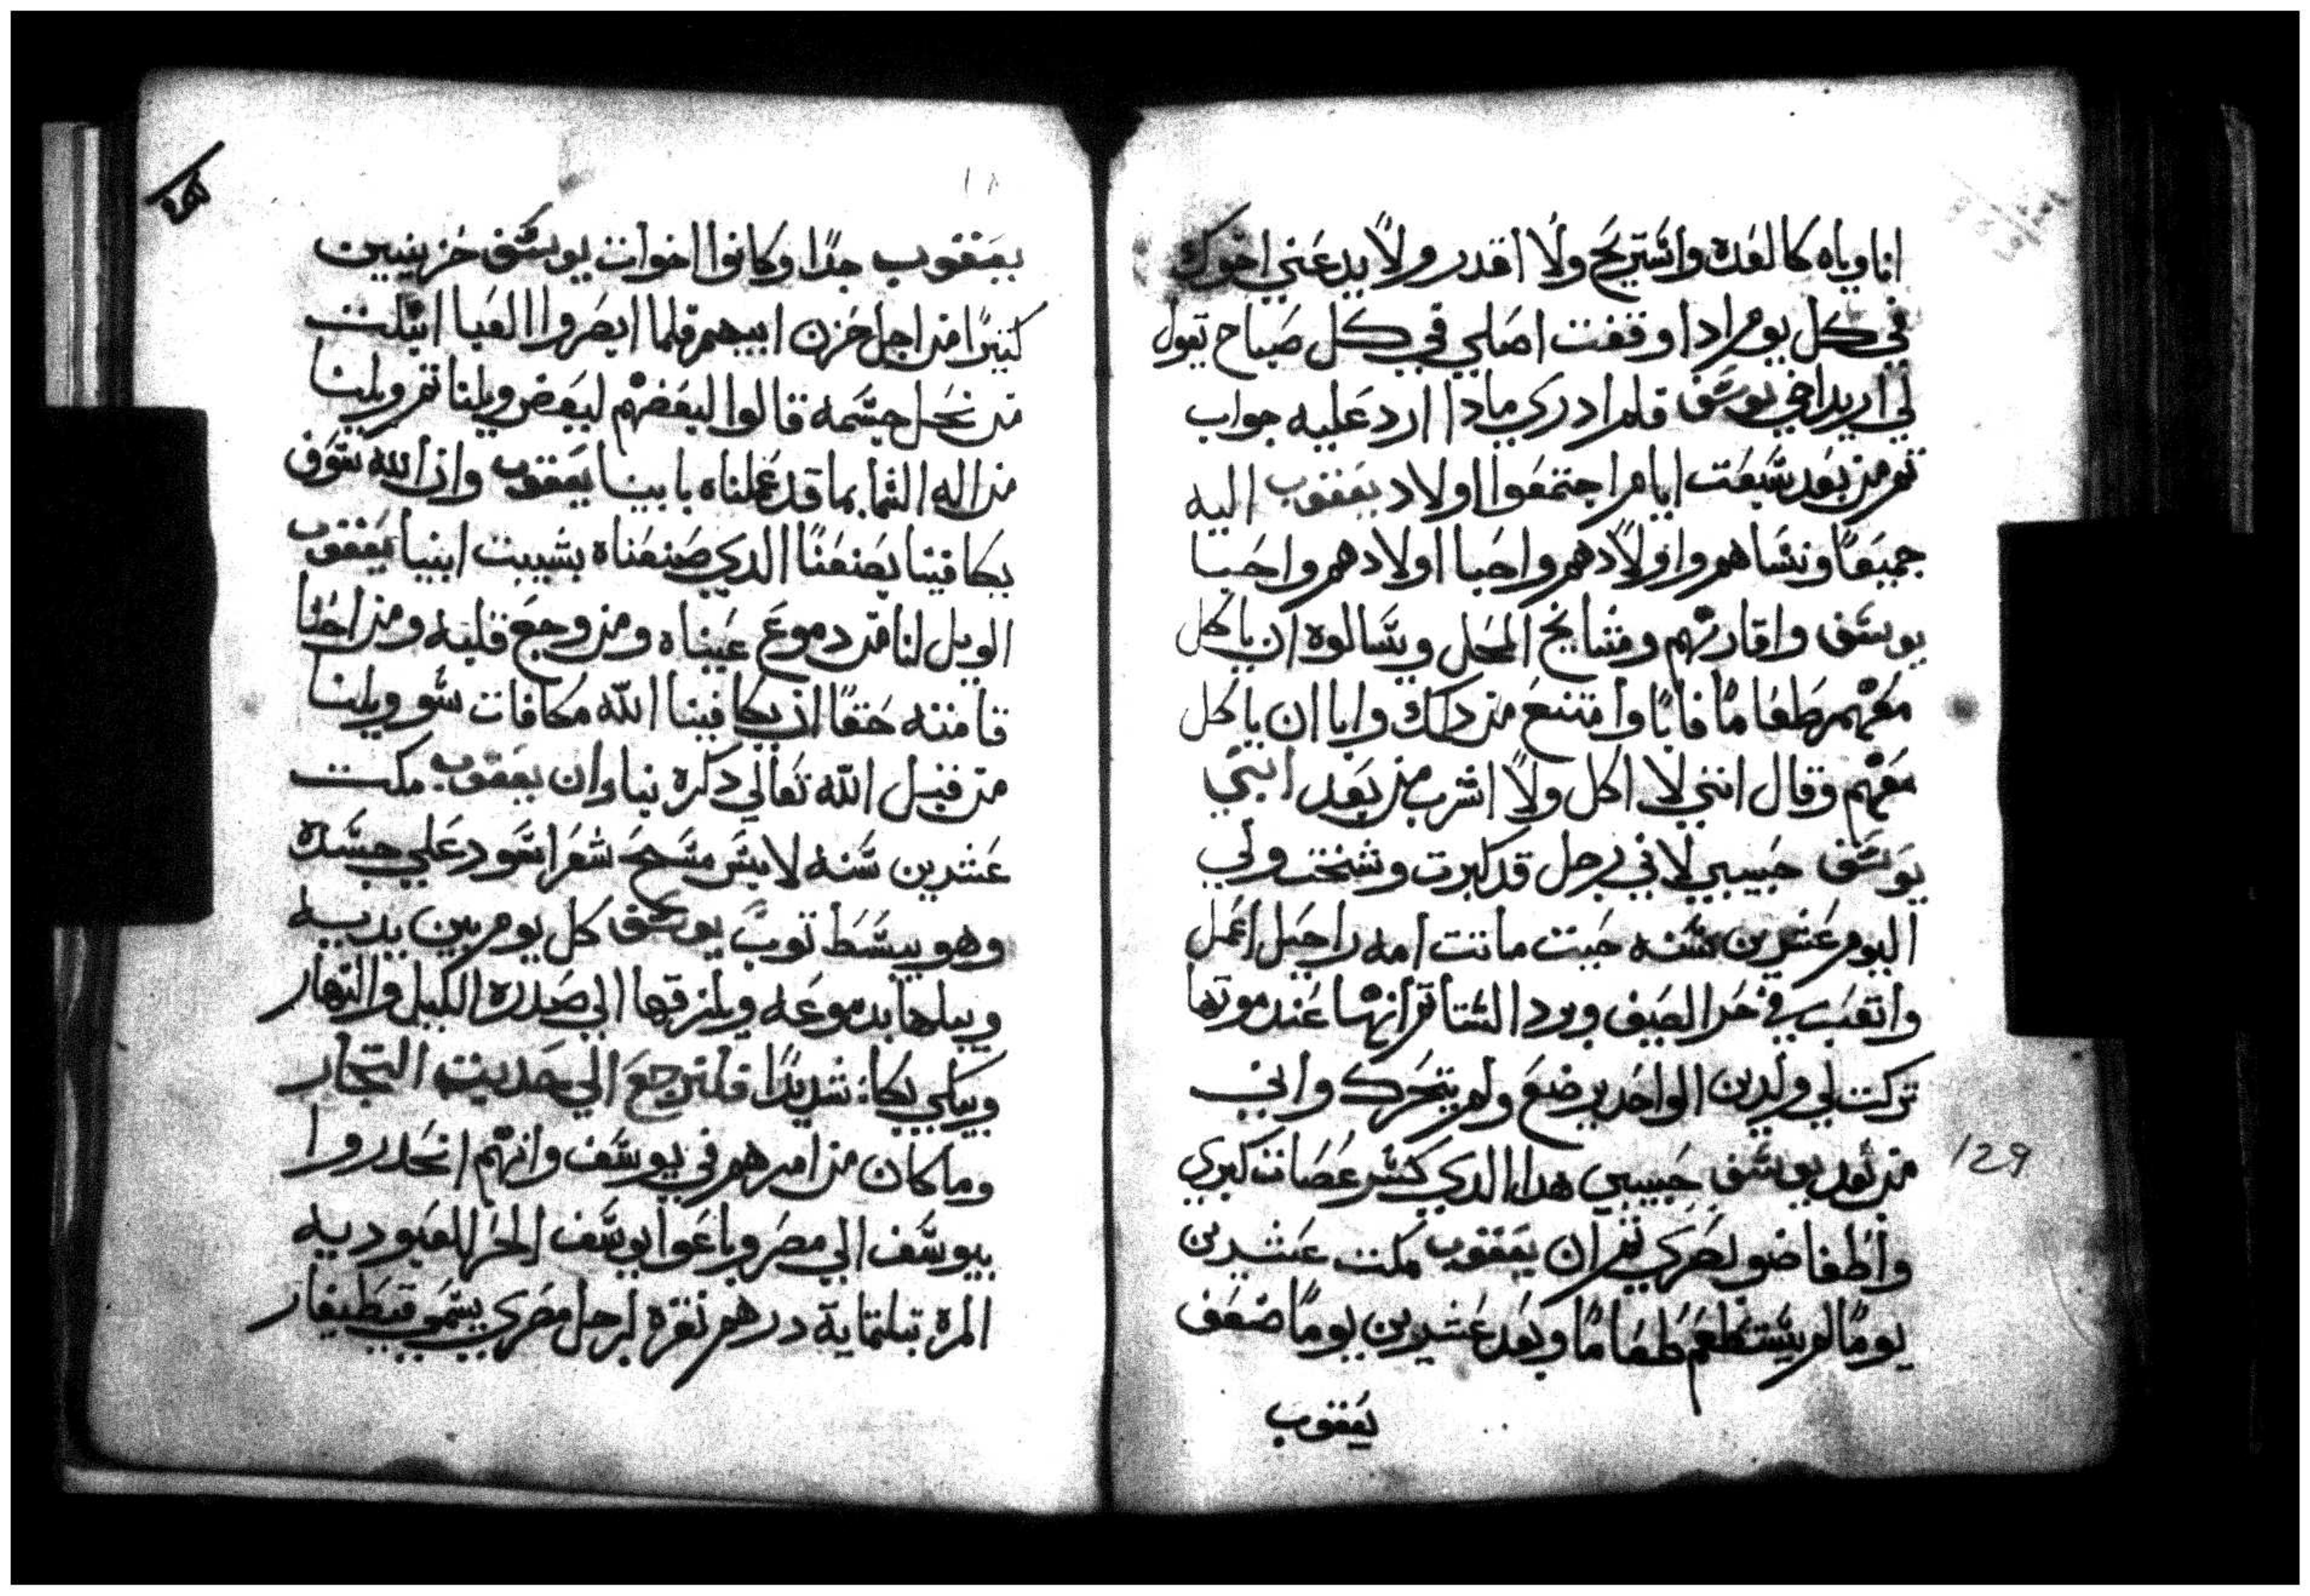 انا وياه كالعده واستريح ولا اقدر ولا يدعني اخوك
في كل يوم ادا وقفت اصلي في كل صباح تقول
لي اريد اخي يوسف فلم ادري مادا ارد عليه جواب
تم من بعد سبعت ايام اجتمعوا اولاد يعقوب اليه
جميعًا ونساهم واولادهم واحبا اولادهم واحبا
يوسف واقاربهم ومشايخ المحل وسالوه ان ياكل
معهم طعامًا فابا وامتنع من دلك وابا ان ياكل
معهم وقال انني لا اكل ولا اشرب من بعد ابني
يوسف حبيبي لاني رجل قد كبرت وشخت ولي
اليوم عشرين سنه حيت ماتت امه راحيل اعمل
واتعب في حر الصيف وبرد الشتا تم انها عند موتها
تركت لي ولدين الواحد يرضع ولم يتحرك واني
من بعد يوسف حبيبي هدا الدي كسر عصات كبري
واطفا ضو بصري تم ان يعقوب مكت عشرين
يومًا لم يستطعم طعامًا وبعد عشرين يومًا ضعف
يعقوب
129
يعقوب جدًا وكانوا اخوات يوسف حزينين
كتيرًا من اجل حزن ابيهم فلما ابصروا العبا ابتلت
من نحل جسمه قالوا لبعضهم لبعض ويلنا تم ويلنا
من اله السما بما قد عملناه بابينا يعقوب وان الله سوف
يكافينا بصنعنا الدي صنعناه بشيبت ابينا يعقوب
الويل لنا من دموع عيناه ومن وجع قلبه ومن احنا
قامته حقًا ان يكافينا الله مكافات سو ويلنا
من قبل الله تعالي دكره تم وان يعقوب مكت
عشرين سنه لابس مسح شعر اسود علي جسده
وهو يبسط توب يوسف كل يوم بين يديه
ويبلها بدموعه ويلزقها الي صدره الليل والنهار
ويبكي بكا شديدًا فلنرجع الي حديت التجار
وما كان من امرهم في يوسف وانهم انحدروا
بيوسف الي مصر وباعوا يوسف الحر للعبوديه
المره بتلتماية درهم نقره لرجل مصري يسمي قيطيفار